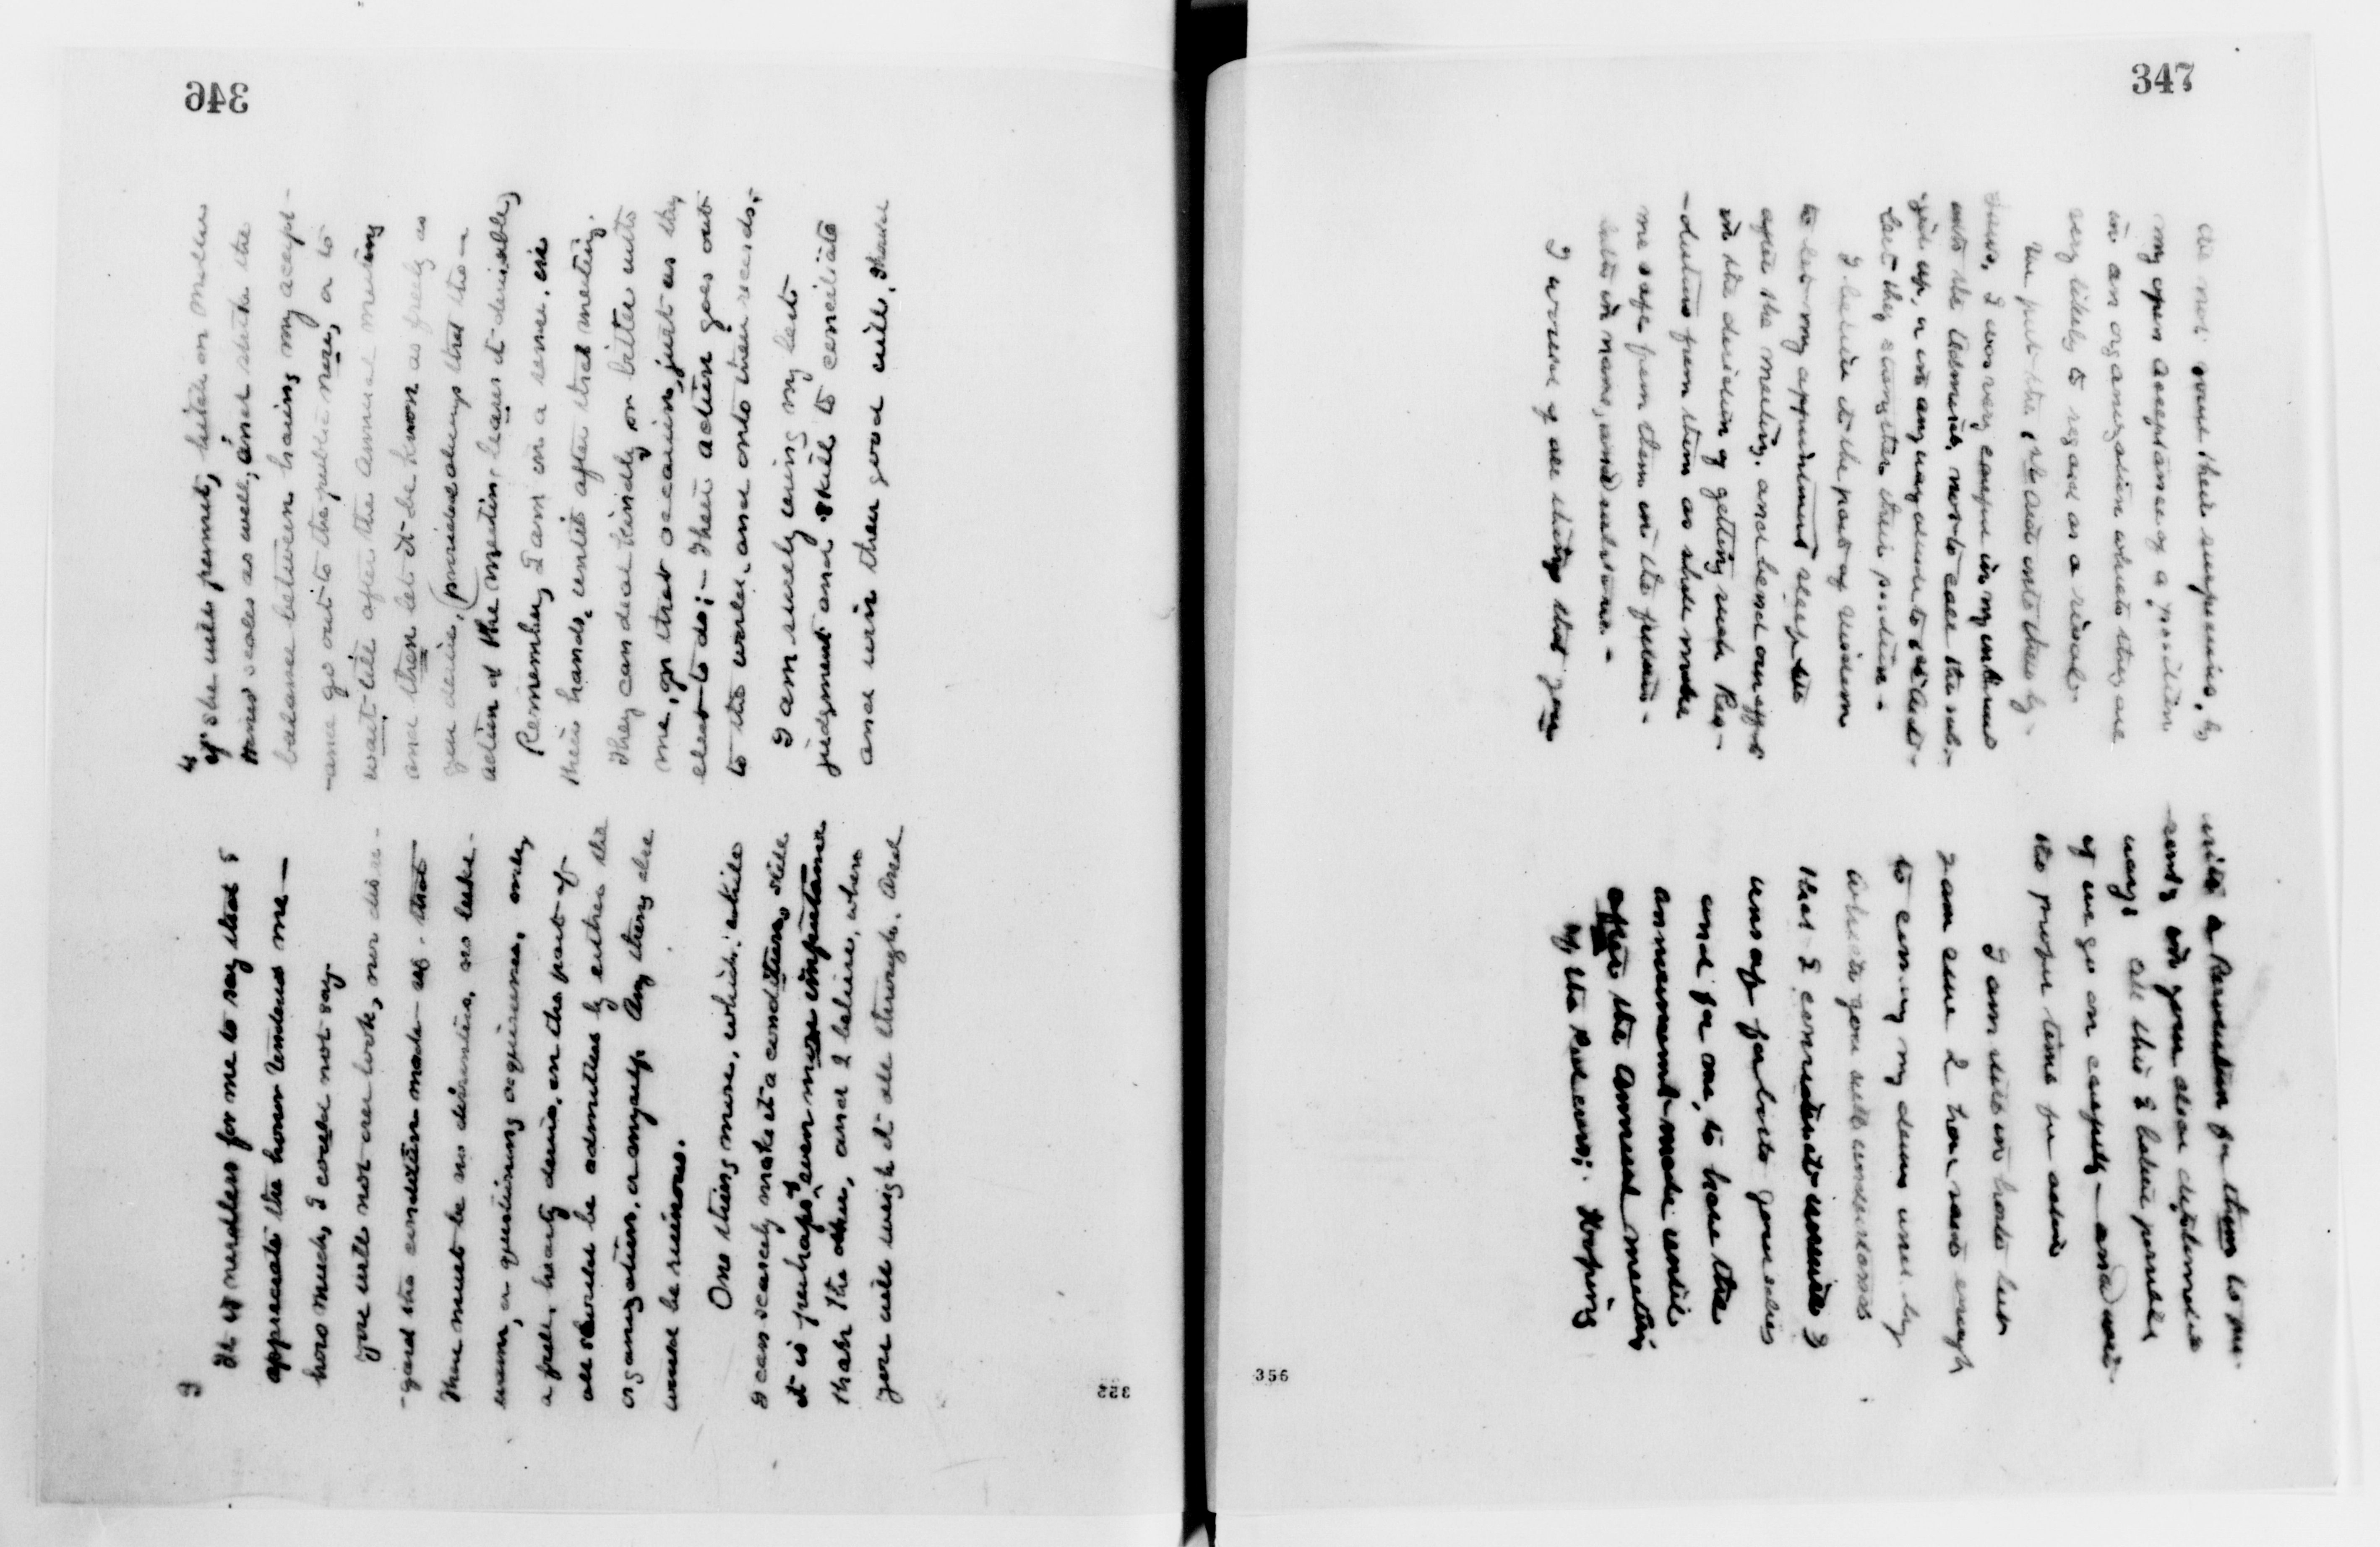 346
3
It is needless for me to say that I
appreciate the honor tendered me—
how much, I could not say.
You will not over look, nor disre-
-gard the condition made— viz. that
there must be no dissenters, no luke
warm, or questioning acquiescence, only
a full, hearty desire, on the part of
all should be admitted by either the
organization, or myself. Any thing else
would be ruinous.
One thing more, which, while
I can scarcely make it a condition, still
it is perhaps of even more importance
than the other, and I believe, when
you will weigh it all through, and
4
if she will permit,
scales as well, and strike the
balance between having my accept-
-ance go out to the public now, or to
wait till after the annual meeting
and then let it be known as freely as
you desire, (provided always that the
action of the meeting leaves it desirable)
Remember, I am in a sense, in
their hands, until after that meeting.
They can deal kindly or bitter with
me, on that occasion, just as they
elect to do;— Their action goes out
to the world, and onto their records,—
I am surely using my best
judgment and skill to conciliate
and win their good will. Should
322
347
we not rouse their suspicions, by
my open acceptance of a position
in an organization which they are
very likely to regard as a rival.
We put the, into this by
I was very careful in my
into the not to call the sub-
ject up, or in any way
lest they strengthen their position—
I believe it the part of wisdom
to let my appointment sleep till
after the meeting, and bend our efforts
in the direction of getting such Res-
-olutions from them as shall make
me safe from them in the future—
both in name, and substance.—
I would of all things that you
write a Resolution for them to pre-
in your
ways. All this I believe possible
if we go on carefully— and
the proper time for action
I am still in
I am sure I have said enough
to convey my and by
which you will understand
that I consider it unwise &
unsafe for both yourselves
and for me, to have the
announcement made until
after the annual meeting
of the Red Cross; Hoping
356